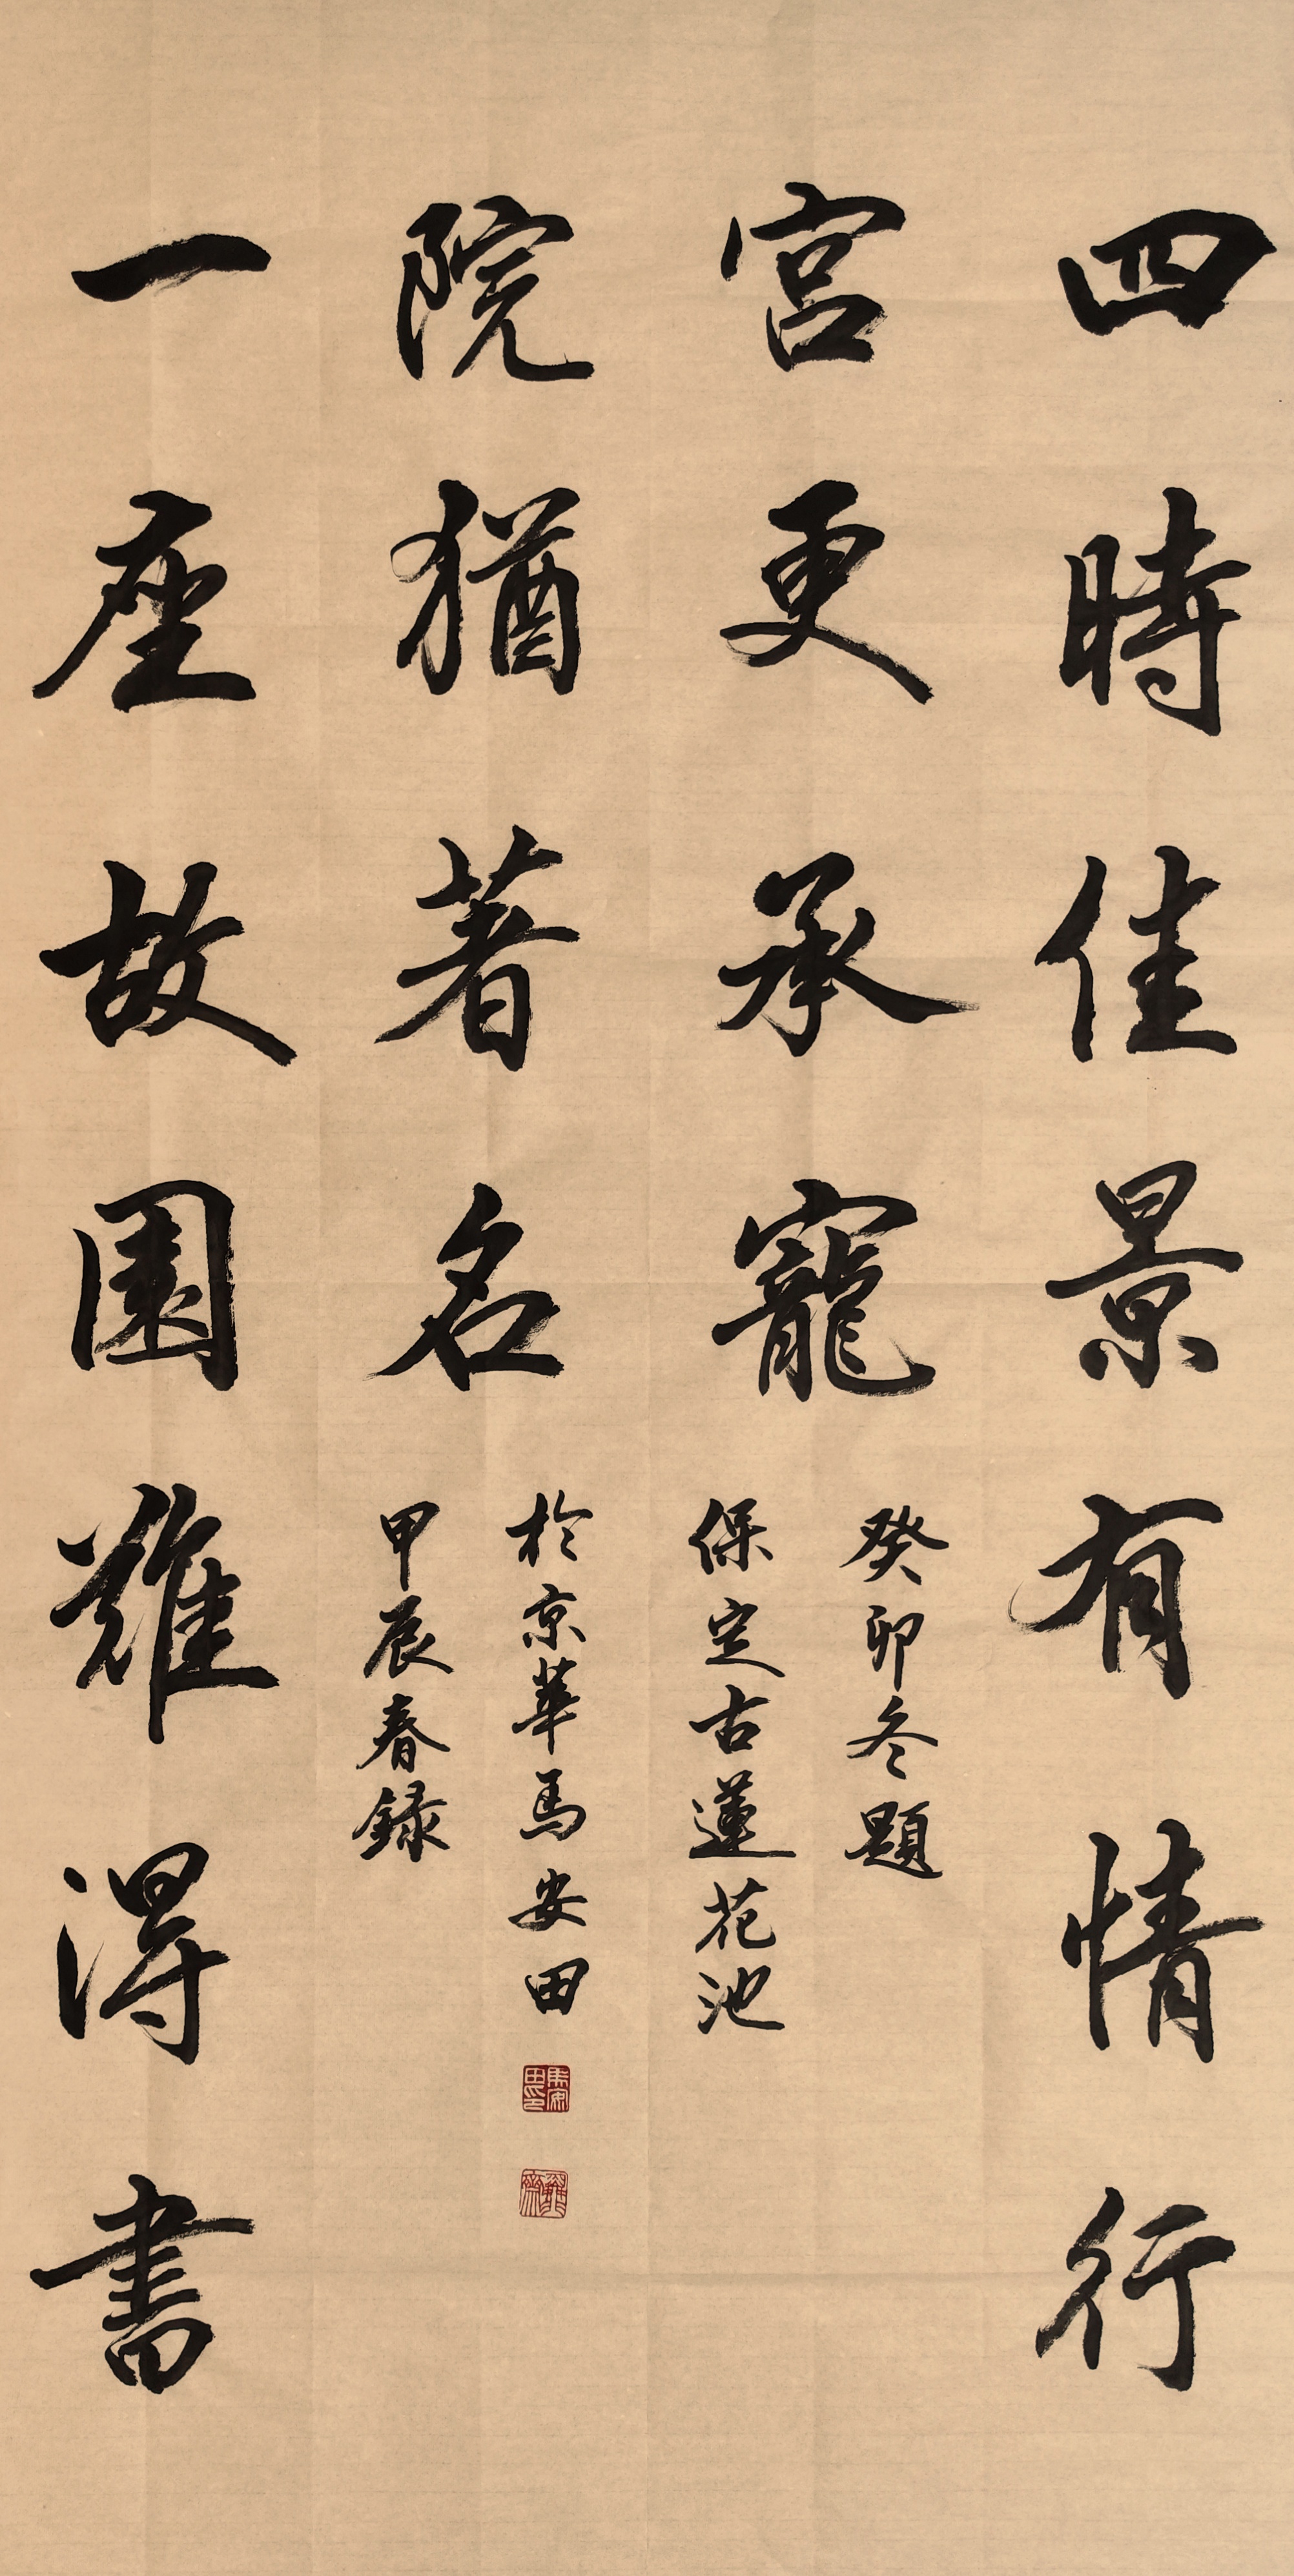 四時佳景有情行
宮更承寵
癸卯冬題
保定古蓮花池
一座故園難得書
院猶著名
甲辰春録
於京華馬安田
馬安田印